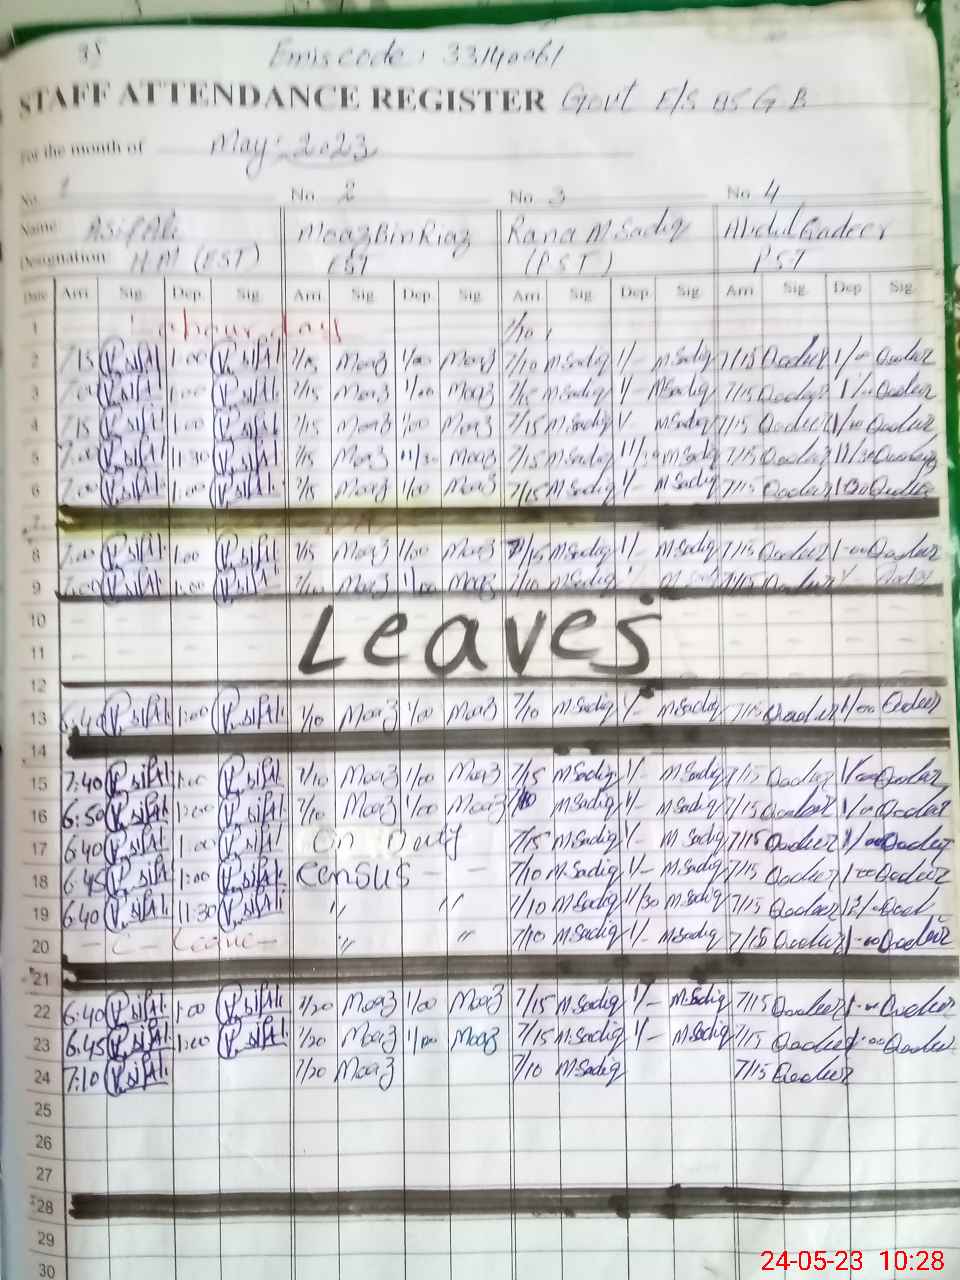 35 Emis code: 33140061
STAFF ATTENDANCE REGISTER Govt E/S 115 G B
For the month of May: 2023
No. 1 No. 2 No. 3 No. 4
Name: Asif Ali Moaz Bin Riaz Rana M Sadiq Abdul Qadeer
Designation: H.M (EST) EST (PST) PST
Date Arri. Sig. Dep. Sig. Arri. Sig. Dep. Sig. Arri. Sig. Dep. Sig. Arri. Sig. Dep Sig.
1 Labour day 7/10
2 7/15 1:00 7/15 Moaz 1/00 Moaz 7/10 M.Sadiq 1/- M.Sadiq 7/15 Qadeer 1/- Qadeer
3 1:00 7/15 Moaz 1/00 Moaz M.Sadiq 1/- M.Sadiq 7/15 Qadeer Qadeer
4 7/15 1:00 7/15 Moaz 1/00 Moaz 7/15 M.Sadiq 1/- M.Sadiq 7/15 Qadeer Qadeer
5 7:00 11:30 7/15 Moaz 11/30 Moaz 7/15 M.Sadiq M.Sadiq 7/15 Qadeer 11/30
6 7:00 1:00 7/15 Moaz 1/00 Moaz 7/15 M.Sadiq 1/- M.Sadiq 7/15 Qadeer Qadeer
7
8 7:00 1:00 7/15 Moaz 1/00 Moaz 7/15 M.Sadiq 1/- M.Sadiq 7/15 Qadeer 1-00 Qadeer
9 7:00 1:00 Moaz 1/00 Moaz 7/10 M.Sadiq 7/15 Qadeer
10 Leaves
11
12
13 6:40 1:00 7/10 Moaz 1/00 Moaz 7/10 M.Sadiq 1/- M.Sadiq 7/15 Qadeer 1/00 Qadeer
14
15 7:40 1:00 7/10 Moaz 1/00 Moaz 7/15 M.Sadiq 1/- M.Sadiq 7/15 Qadeer 1/00 Qadeer
16 6:50 1:00 7/10 Moaz 1/00 Moaz 7/10 M.Sadiq 1/- M.Sadiq 7/15 Qadeer 1/00 Qadeer
17 6:40 1:00 On Duty 7/15 M.Sadiq 1/- M.Sadiq 7/15 Qadeer 1/00 Qadeer
18 6:45 1:00 Census - - 7/10 M.Sadiq 1/- M.Sadiq 7/15 Qadeer 1-00 Qadeer
19 6:40 11:30 " " 7/10 M.Sadiq 11/30 M.Sadiq 7/15 Qadeer
20 - C - Leave - " " 7/10 M.Sadiq 1/- M.Sadiq 7/15 Qadeer 1-00 Qadeer
21
22 6:40 1:00 7/20 Moaz 1/00 Moaz 7/15 M.Sadiq 1/- M.Sadiq 7/15 Qadeer Qadeer
23 6:45 1:00 7/20 Moaz 1/00 Moaz 7/15 M.Sadiq 1/- M.Sadiq 7/15 Qadeer Qadeer
24 7:10 7/20 Moaz 7/10 M.Sadiq 7/15 Qadeer
25
26
27
28
29
30
24-05-23 10:28